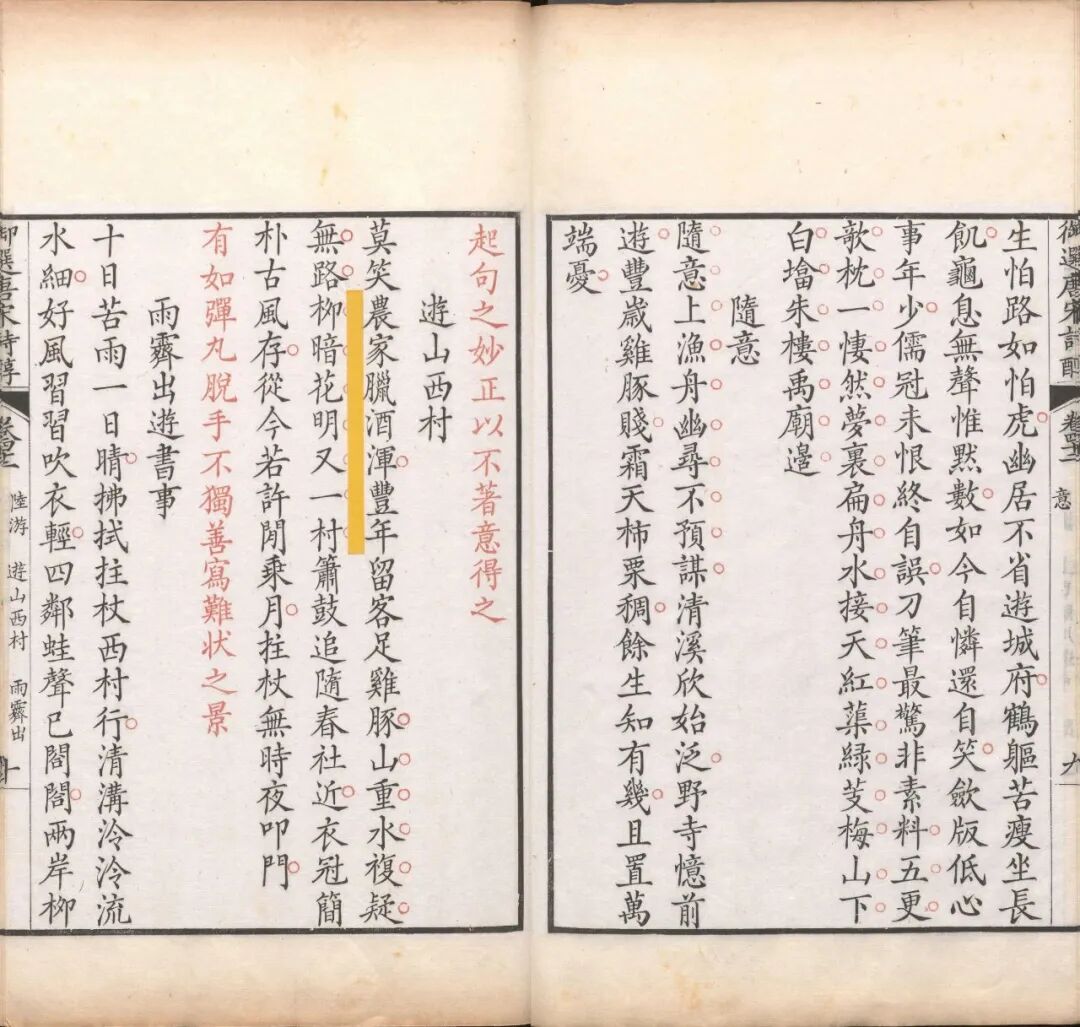 意
九
生怕路如怕虎幽居不省遊城府鶴軀苦瘦坐長
飢龜息無聲惟默數如今自憐還自笑歛版低心
事年少儒冠未恨終自誤刀筆最驚非素料五更
欹枕一悽然夢裏扁舟水接天紅蕖綠芰梅山下
白墖朱樓禹廟邊
隨意
隨意上漁舟幽尋不預謀清溪欣始泛野寺憶前
遊豐歳雞豚賤霜天柿栗稠餘生知有幾且置萬
端憂
起句之妙正以不著意得之
遊山西村
莫笑農家臘酒渾豐年留客足雞豚山重水複疑
無路柳暗花明又一村簫鼓追隨春社近衣冠簡
朴古風存從今若許閒乗月拄杖無時夜叩門
有如彈丸脫手不獨善寫難狀之景
雨霽出遊書事
十日苦雨一日晴拂拭拄杖西村行清溝泠泠流
水細好風習習吹衣輕四鄰蛙聲已閤閤兩岸柳
陸游 遊山西村 雨霽出